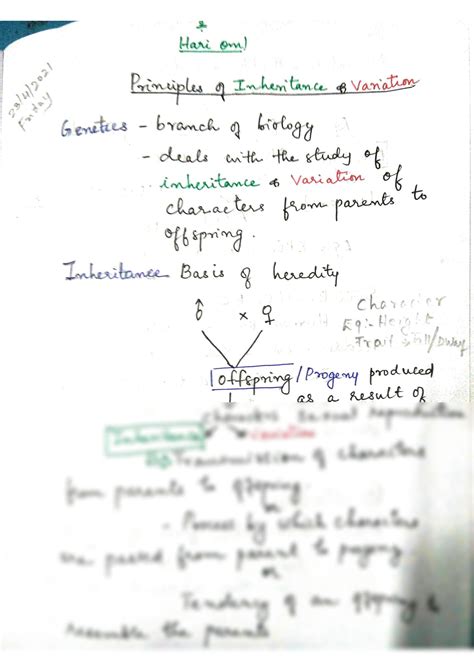 Hari om
23/4/2021
Friday
Principles of Inheritance & Variation
Genetics - branch of biology
- deals with the study of
inheritance & Variation of
characters from parents to
offspring.
Inheritance Basis of heredity
♂ × ♀
Character
Eg:- Height
Trait
Offspring / Progeny produced
as a result of
characters Sexual reproduction
Inheritance variation
Transmission of characters
from parents to offspring
or
- Process by which characters
are passed from parent to progeny
or
Tendency of an offspring to
resemble the parents